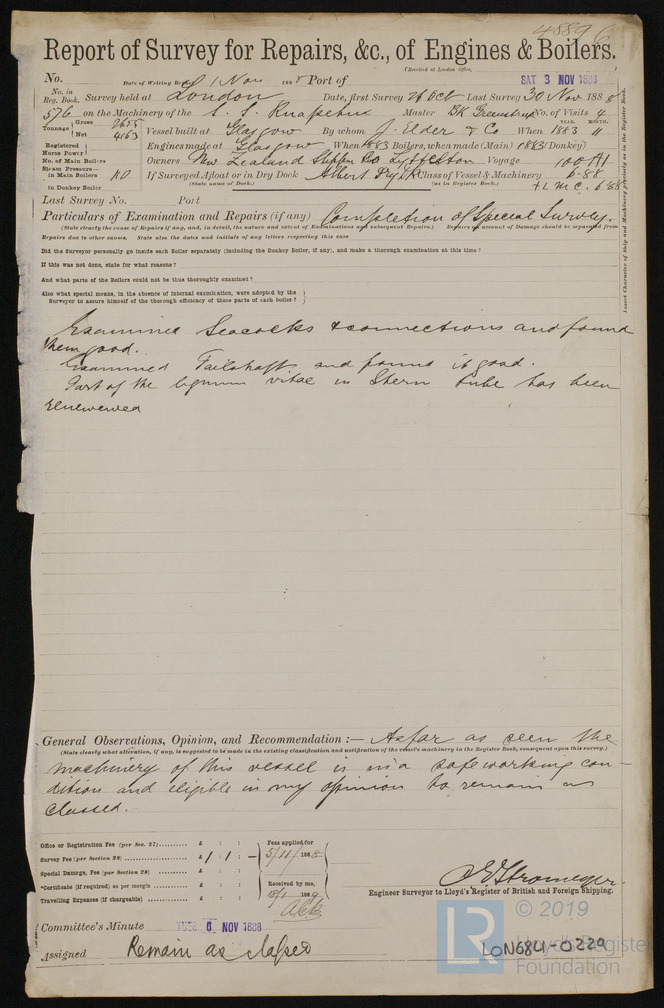 48896
Report of Survey for Repairs, &c., of Engines & Boilers.
(Received at London Office,
No. Date of Writing Report 1 Nov 1888 Port of SAT 3 NOV 1888
No. in Reg. Book. Survey held at London Date, first Survey 26 Oct Last Survey 30 Nov 1888
576 on the Machinery of the S. S. Ruapehu Master No. of Visits 4
Tonnage Gross 2655 Net 4163 Vessel built at Glasgow By whom J. Elder & Co When 1883 11
YEAR. MONTH.
Registered Horse Power Engines made at Glasgow When 1883 Boilers, when made (Main) 1883 (Donkey)
No. of Main Boilers Owners New Zealand Shippg Co Lyttelton Voyage 100 A1
Steam Pressure in Main Boilers 80 If Surveyed Afloat or in Dry Dock Albert Dry Dk Class of Vessel & Machinery 6-88
in Donkey Boiler (State name of Dock.) (as in Register Book.) + L M C. 6 88
Last Survey No. Port
Particulars of Examination and Repairs (if any) Completion of Special Survey.
(State clearly the cause of Repairs if any, and, in detail, the nature and extent of Examinations and subsequent Repairs.) Repairs on account of Damage should be separated from
Repairs due to other causes. State also the dates and initials of any letters respecting this case
Did the Surveyor personally go inside each Boiler separately (including the Donkey Boiler, if any), and make a thorough examination at this time?
If this was not done, state for what reasons?
And what parts of the Boilers could not be thoroughly examined?
Also what special means, in the absence of internal examination, were adopted by the
Surveyor to assure himself of the thorough efficiency of those parts of each boiler?
Insert Character of Ship and Machinery precisely as in the Register Book.
Examined Seacocks & connections and found
them good.
Examined Tailshaft and found it good.
Part of the lignum vitae in Stern tube has been
renewewed
General Observations, Opinion, and Recommendation :— As far as seen the
(State clearly what alteration, if any, is suggested to be made in the existing classification and notification of the vessel's machinery in the Register Book, consequent upon this survey.)
machinery of this vessel is in a safe working con-
dition and eligible in my opinion to remain as
classed.
Office or Registration Fee (per Sec. 27) £ : : Fees applied for
Survey Fee (per Section 28) £ 1 : 1 : – 5/11/ 1888
Special Damage, Fee (per Section 28) £ : :
*Certificate (if required) as per margin £ : : Received by me,
Travelling Expenses (if chargeable) £ : :
C E Stromeyer
Engineer Surveyor to Lloyd's Register of British and Foreign Shipping.
Committee's Minute TUES 6 NOV 1888
Assigned Remain as classed
LR © 2019
Lloyd's Register
Foundation
LON684-0229